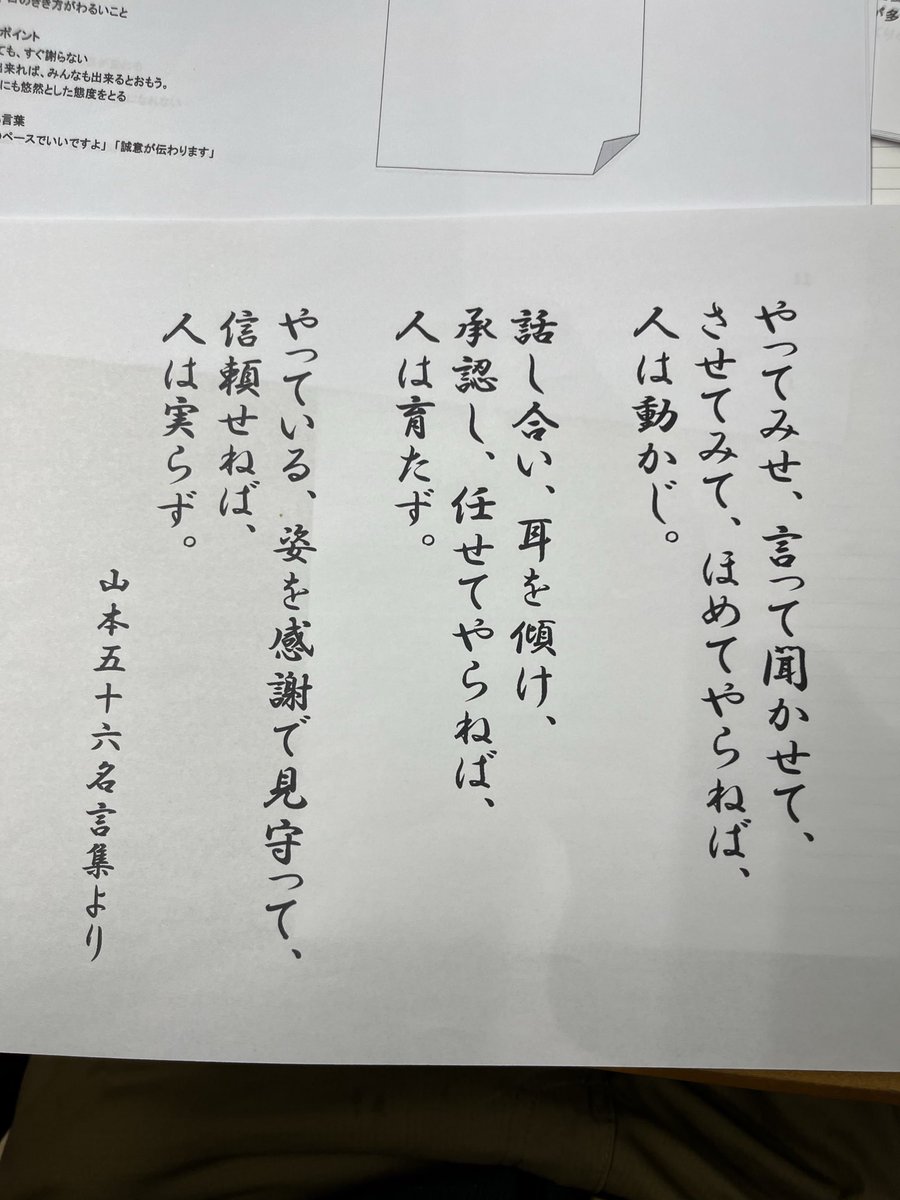 のきき方がわるいこと
ポイント
ても、すぐ謝らない
出来れば、みんなも出来るとおもう。
にも悠然とした態度をとる
言葉
ペースでいいですよ」「誠意が伝わります」
多
やってみせ、言って聞かせて、
させてみて、ほめてやらねば、
人は動かじ。
話し合い、耳を傾け、
承認し、任せてやらねば、
人は育たず。
やっている、姿を感謝で見守って、
信頼せねば、
人は実らず。
山本五十六名言集より